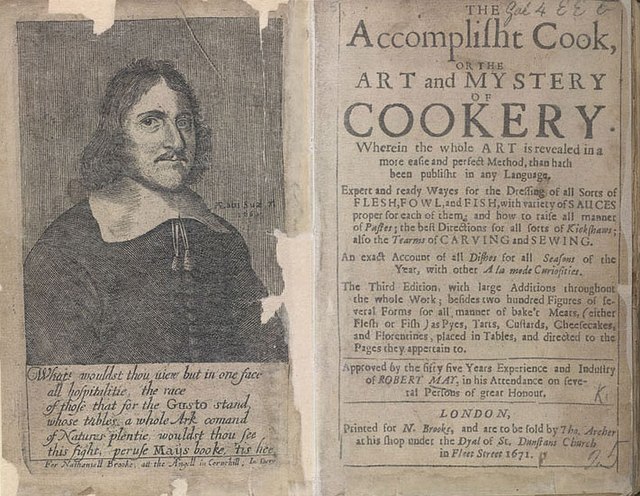 What! wouldst thou view but in one face
all hospitalitie, the race
of those that for the Gusto stand,
whose tables a whole Ark comand
of Natures plentie, wouldst thou see
this sight, peruse Mays booke, 'tis hee.
For Nathaniell Brooke, att the Angell in Cornhill,
THE
Accomplisht Cook,
OR THE
ART and MYSTERY
OF
COOKERY.
Wherein the whole ART is revealed in a
more easie and perfect Method, than hath
been publisht in any Language.
Expert and ready Wayes for the Dressing of all Sorts of
FLESH, FOWL, and FISH, with variety of SAUCES
proper for each of them; and how to raise all manner
of Pastes; the best Directions for all sorts of Kickshaws;
also the Tearms of CARVING and SEWING.
An exact Account of all Dishes for all Seasons of the
Year, with other A la mode Curiosities.
The Third Edition, with large Additions throughout
the whole Work; besides two hundred Figures of se-
veral Forms for all manner of bake't Meats, (either
Flesh or Fish) as Pyes, Tarts, Custards, Cheesecakes,
and Florentines, placed in Tables, and directed to the
Pages they appertain to.
Approved by the fifty five Years Experience and Industry
of ROBERT MAY, in his Attendance on seve-
ral Persons of great Honour.
LONDON,
Printed for N. Brooke, and are to be sold by Tho. Archer
at his shop under the Dyal of St. Dunstans Church
in Fleet Street 1671.